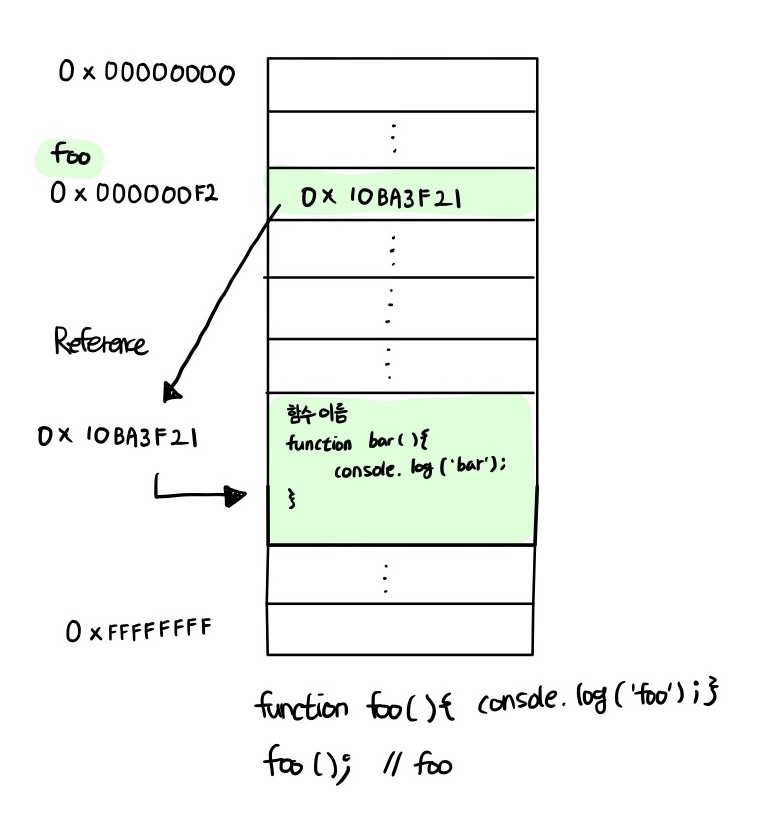 0x00000000
foo
0x000000F2
0x10BA3F21
Reference
0x10BA3F21
함수 이름
function bar(){
console.log('bar');
}
0xFFFFFFFF
function foo(){ console.log('foo');}
foo(); // foo